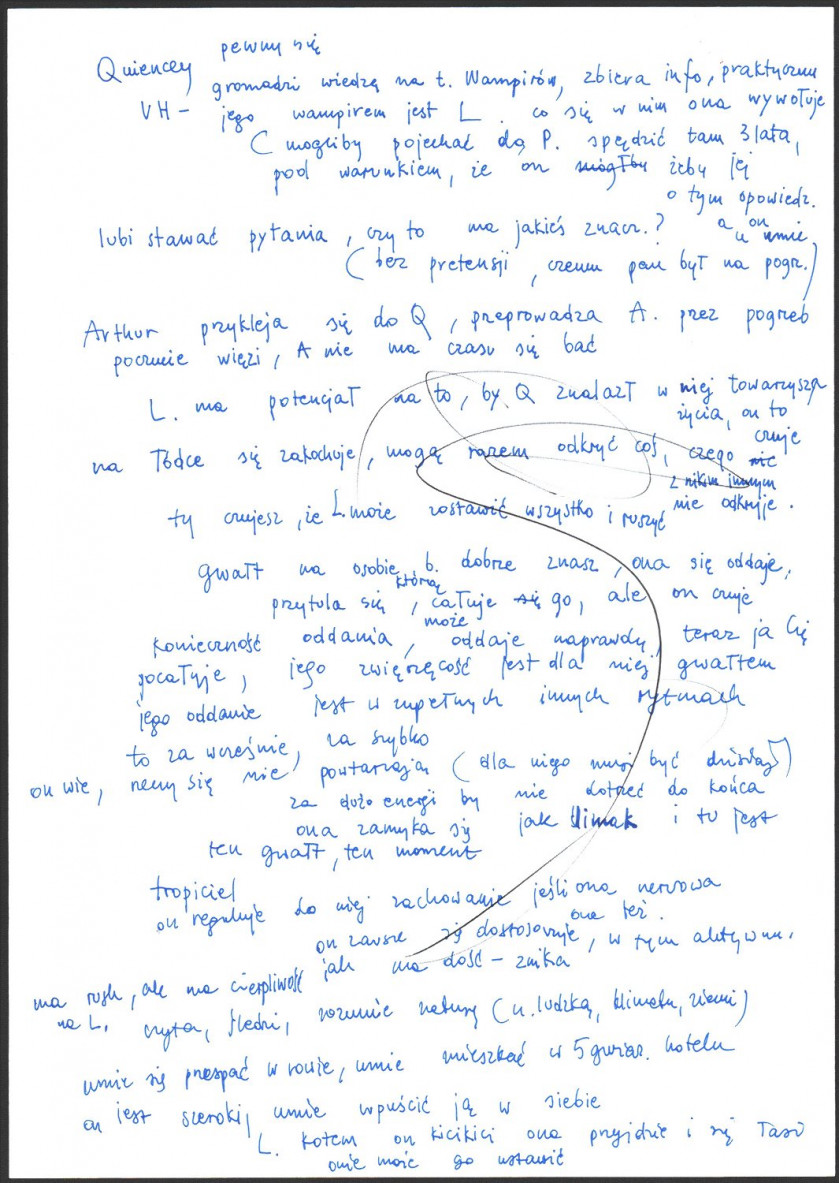 pewny się
Quiencey gromadzi wiedzę na t. Wampirów, zbiera info, praktyczm
VH – jego wampirem jest L. co się w nim ona wywołuje
( mogliby pojechać do P. spędzić tam 3 lata,
pod warunkiem, że on mógłby żeby jej
o tym opowiedz.
lubi stawać pytania, czy to ma jakieś znacz.? a on u umie
( bez pretensji, czemu pan był na pogr.)
Arthur przykleja się do Q, preprowadza A. przez pogrzeb
poczucie więzi, A nie ma czasu się bać
L. ma potencjał na to, by Q znalazł w niej towarzysza
życia, on to
czuje
na łódce się zakochuje, mogą razem odkryć coś, czego nie
z nikim innym
nie odkryje.
ty czujesz, że L. może zostawić wszystko i ruszyć
gwałt na osobie b. dobrze znasz, ona się oddaje,
którą
przytula się, całuje się go, ale on czuje
może
konieczność oddania, oddaje naprawdę, teraz ja Cię
pocałuję, jego zwierzęcość jest dla niej gwałtem
jego oddanie jest w zupełnych innych rytmach
to za wcześnie, za szybko
on wie, rzeczy się nie powtarzają (dla niego musi być dzisiaj)
za dużo energi by nie dotrzeć do końca
ona zamyka się jak ślimak i tu jest
ten gwałt, ten moment
tropiciel
on reguluje do niej zachowanie jeśli ona nerwowa
ona też.
on zawsze się dostosowuje, w tym aktywn.
jak ma dość – znika
ma rush, ale ma cierpliwość
na L. czyta, śledzi, rozumie naturę (n. ludzką, klimatu, ziemi)
umie się przespać w rowie, umie mieszkać w 5 gwiaz. hotelu
on jest szeroki, umie wpuścić ją w siebie
L. kotem on kicikici ona przyjdzie i się łasi
onie może go ustawić